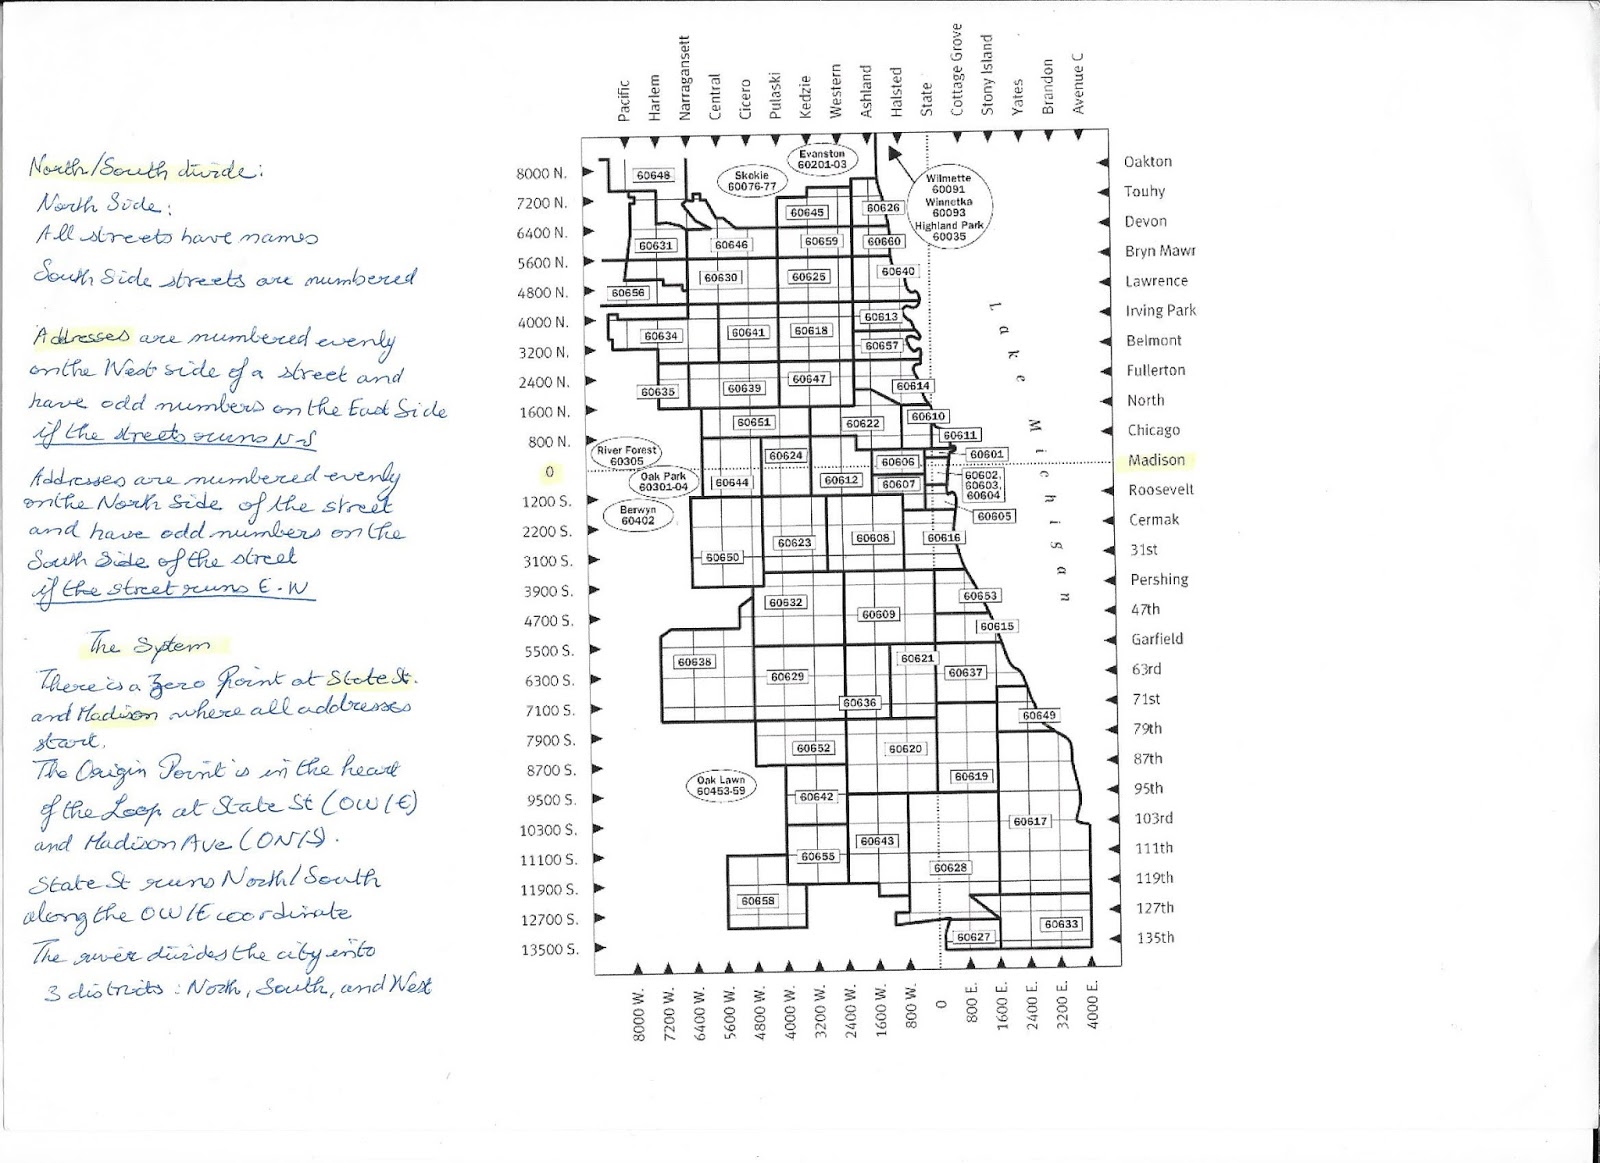 North/South divide:
North Side:
All streets have names
South Side streets are numbered
Addresses are numbered evenly
on the West side of a street and
have odd numbers on the East Side
if the streets runs N-S
Addresses are numbered evenly
on the North Side of the street
and have odd numbers on the
South Side of the street
if the street runs E-W
The System
There is a Zero Point at State St.
and Madison where all addresses
start.
The Origin Point is in the heart
of the Loop at State St (OW/E)
and Madison Ave (ON/S).
State St runs North/South
along the OW/E coordinate
The river divides the city into
3 districts: North, South, and West
Pacific
Harlem
Narragansett
Central
Cicero
Pulaski
Kedzie
Western
Ashland
Halsted
State
Cottage Grove
Stony Island
Yates
Brandon
Avenue C
8000 N.
7200 N.
6400 N.
5600 N.
4800 N.
4000 N.
3200 N.
2400 N.
1600 N.
800 N.
0
1200 S.
2200 S.
3100 S.
3900 S.
4700 S.
5500 S.
6300 S.
7100 S.
7900 S.
8700 S.
9500 S.
10300 S.
11100 S.
11900 S.
12700 S.
13500 S.
Evanston
60201-03
Skokie
60076-77
Wilmette
60091
Winnetka
60093
Highland Park
60035
60648
60645
60626
60631
60646
60659
60660
60656
60630
60625
60640
60634
60641
60618
60613
60657
60635
60639
60647
60614
60651
60622
60610
60611
River Forest
60305
60624
60606
60601
Oak Park
60301-04
60644
60612
60607
60602,
60603,
60604
Berwyn
60402
60605
60650
60623
60608
60616
60632
60609
60653
60615
60638
60629
60621
60637
60636
60649
60652
60620
60619
Oak Lawn
60453-59
60642
60617
60655
60643
60628
60658
60627
60633
Lake Michigan
Oakton
Touhy
Devon
Bryn Mawr
Lawrence
Irving Park
Belmont
Fullerton
North
Chicago
Madison
Roosevelt
Cermak
31st
Pershing
47th
Garfield
63rd
71st
79th
87th
95th
103rd
111th
119th
127th
135th
8000 W.
7200 W.
6400 W.
5600 W.
4800 W.
4000 W.
3200 W.
2400 W.
1600 W.
800 W.
0
800 E.
1600 E.
2400 E.
3200 E.
4000 E.